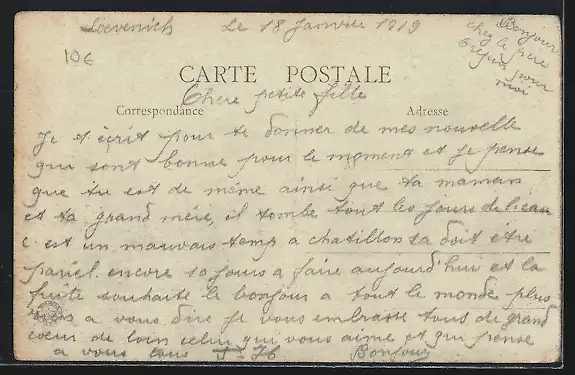 Loevenich Le 18 Janvier 1919
Bonjour
chez le père
Crepin pour
moi
106
CARTE POSTALE
Chere petite fille
Correspondance Adresse
Je t écrit pour te donner de mes nouvelle
qui sont bonne pour le moment et je pense
que tu est de même ainsi que ta maman
et ta grand mère, il tombe tout les jours de l'eau
c est un mauvais temp a chatillon sa doit etre
pariel encore 10 jours a faire aujourd'hui et la
fuite souhaite le bonjour a tout le monde plus
rien a vous dire je vous embrasse tous de grand
coeur de loin celui qui vous aime et qui pense
a vous tous Bonjour